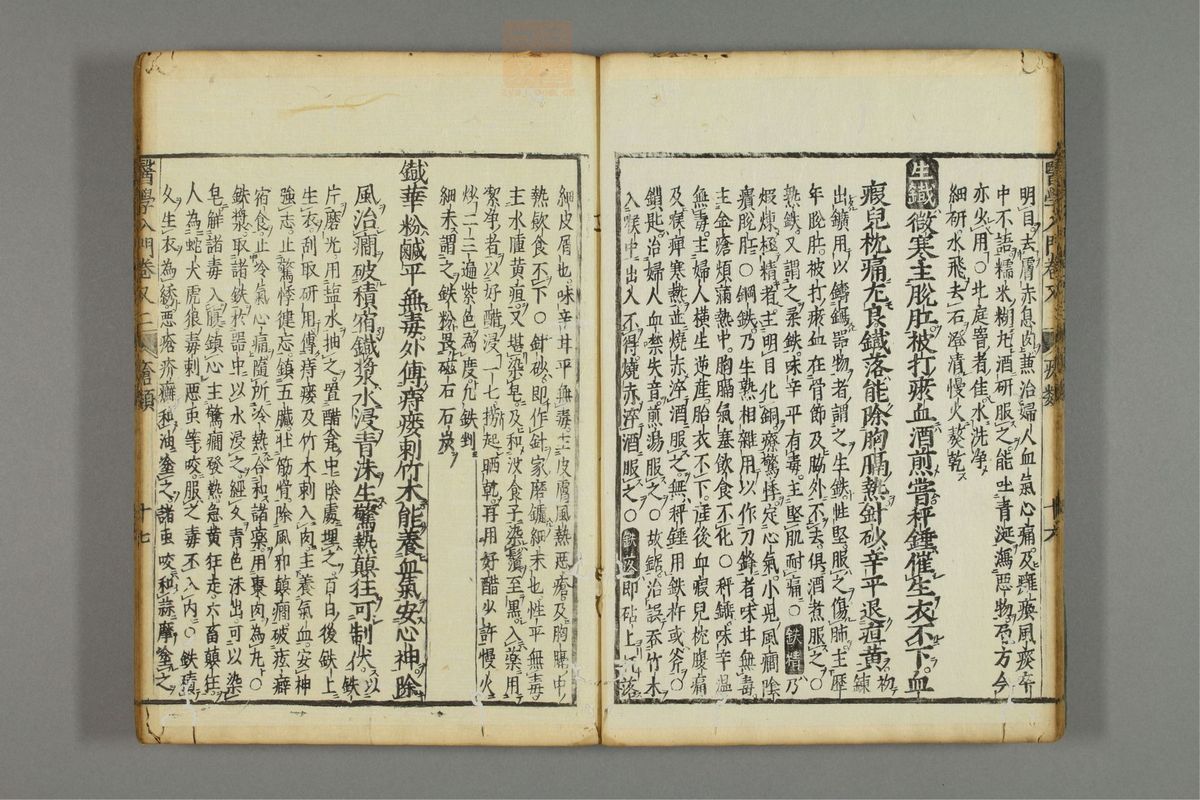 明目去膚赤息肉兼治婦人血氣心痛及癱瘓風痰卒
中不語糯米糊丸酒研服之能吐青涎瀉惡物乃方今
亦少用〇北庭者佳水洗淨
細研水飛去石澄清慢火熬乾
生鐵微寒主脫肛被打瘀血酒煎嘗秤錘催生衣不下血
瘕兒枕痛尤良鐵落能除胸膈熱針砂辛平退疸黃初鍊
出鑛用以鑄鎢器物者謂之生鉄性堅服之傷肺主歷
年脫肛被打瘀血在骨節及脇外不去俱酒煮服之〇
熟鉄又謂之柔鉄味辛平有毒主堅肌耐痛〇鉄精乃
煆煉極精者主明目化銅療驚悸定心氣小兒風癇陰
㿉脫肛〇鋼鉄乃生熟相雜用以作刀鋒者味甘無毒
主金瘡煩滿熱中胸膈氣塞飲食不化〇秤錘味辛溫
無毒主婦人橫生逆產胎衣不下產後血瘕兒枕腹痛
及喉痺寒熱並燒赤淬酒服之無秤錘用鉄杵或斧〇
鎖匙治婦人血禁失音煎湯服之〇故鋸治誤吞竹木
入喉中出入不得燒赤淬酒服之〇鉄落即砧上打落
細皮屑也味辛甘平無毒主皮膚風熱惡瘡及胸膈中
熱飲食不下〇針砂即作針家磨鑪細末也性平無毒
主水庫黃疸又堪染皂及和沒食子染鬚至黑入藥用
潔淨者以好醋浸一七撈起晒乾再用好醋少許慢火
炒二三遍紫色為度凡鉄到
細末謂之鉄粉畏磁石石炭
鐵華粉鹹平無毒外傅痔瘻刺竹木能養血氣安心神除
風治癎破積宿鐵漿水浸青沫生驚熱顛狂可制伏以鉄
片磨光用盐水抽之置醋瓮中陰處埋之百日後鉄上
生衣刮取研用傅痔瘻及竹木刺入肉主養氣血安神
強志止驚悸健忘鎮五臟壯筋骨除風邪顛癇破痃癖
宿食止冷氣心痛隨所冷熱合和諸藥用棗肉為丸〇
鉄漿取諸鉄於器中以水浸之經久青色沫出可以染
皂解諸毒入腹鎮心主驚癇發熱急黃狂走六畜顛狂
人為蛇犬虎狼毒刺惡虫等咬服之毒不入內〇鉄
久生衣為銹惡瘡疥癬和油塗之諸虫咬和蒜摩塗之
醫學入門卷又二
瘡類
十七
十六